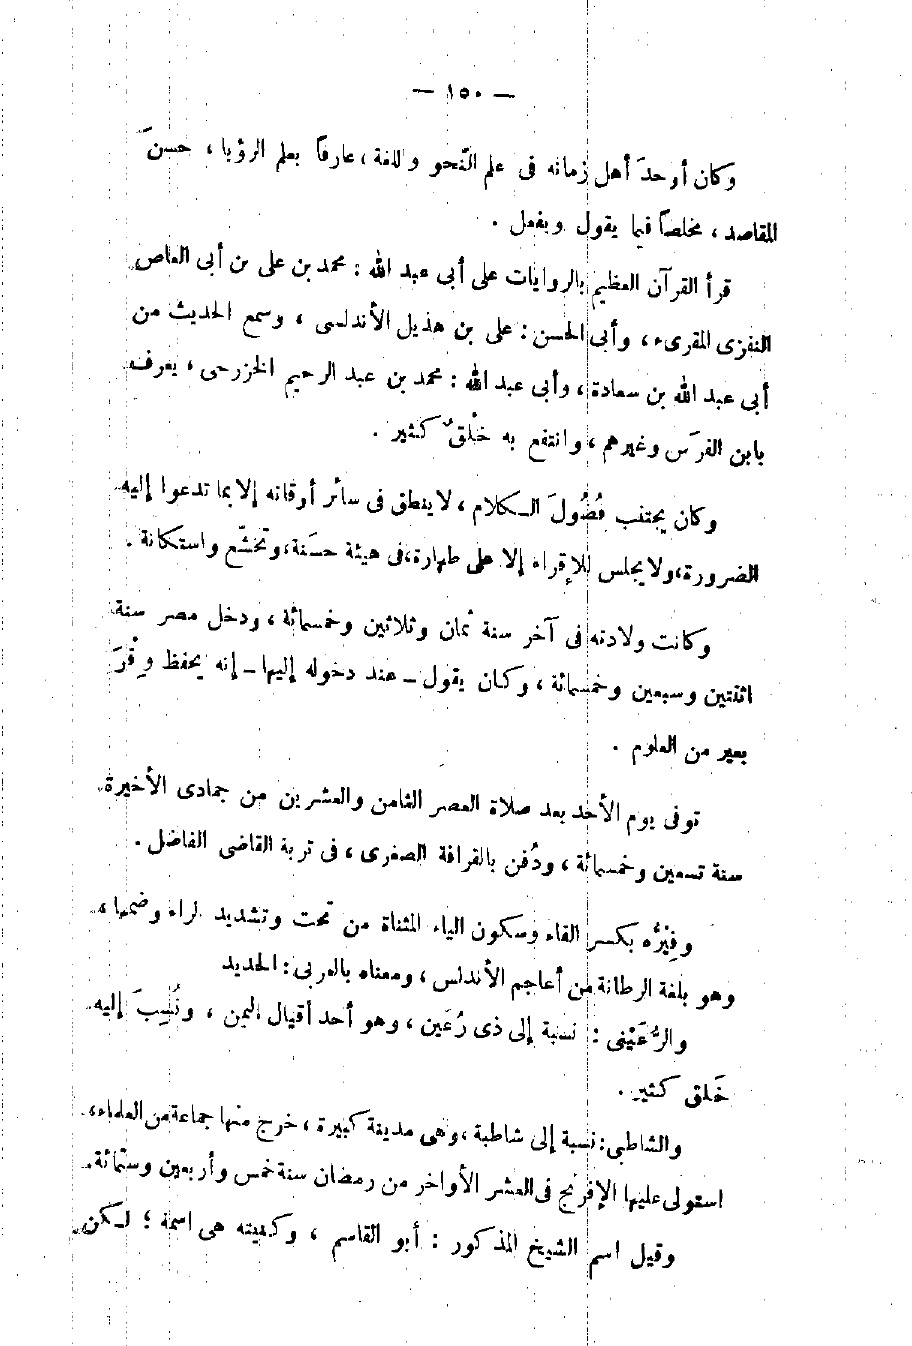 — ١٥٠ —
وكان أوحدَ أهل زمانه فى علم النّحو واللغة ، عارفاً بعلم الرؤيا ، حسنَ
المقاصد ، مخلصاً فيما يقول ويفعل .
قرأ القرآن العظيم بالروايات على أبى عبد الله : محمد بن على بن أبى العاص
النفزى المقرىء ، وأبى الحسن : على بن هذيل الأندلسى ، وسمع الحديث من
أبى عبد الله بن سعادة ، وأبى عبد الله : محمد بن عبد الرحيم الخزرجى ، يعرف
بابن الفرَس وغيرهم ، وانتفع به خلْقٌ كثير .
وكان يجتنب فُضُولَ الـكلام ، لا ينطق فى سائر أوقاته إلا بما تدعوا إليه
الضرورة ، ولا يجلس للإقراء إلا على طهارة ، فى هيئة حسَنة ، وتخشّع واستكانة .
وكانت ولادته فى آخر سنة ثمان وثلاثين وخمسمائة ، ودخل مصر سنة
اثنتين وسبعين وخمسمائة ، وكان يقول ـ عند دخوله إليها ـ إنه يحفظ وِقْرَ
بعير من العلوم .
توفى يوم الأحد بعد صلاة العصر الثامن والعشرين من جمادى الأخيرة
سنة تسعين وخمسمائة ، ودُفن بالقرافة الصغرى ، فى تربة القاضى الفاضل .
وفِيْرُّه بكسر الفاء وسكون الياء المثناة من تحت وتشديد الراء وضمها ،
وهو بلغة الرطانة من أعاجم الأندلس ، ومعناه بالعربى : الحديد
والرُّعَيْنى : نسبة إلى ذى رُعَين ، وهو أحد أقيال اليمن ، ونُسِبَ إليه
خَلق كثير .
والشاطبى : نسبة إلى شاطبة ، وهى مدينة كبيرة ، خرج منها جماعة من العلماء ،
استولى عليها الإفرنج فى العشر الأواخر من رمضان سنة خمس وأربعين وستمائة .
وقيل اسم الشيخ المذكور : أبو القاسم ، وكنيته هى اسمة ؛ لـكن